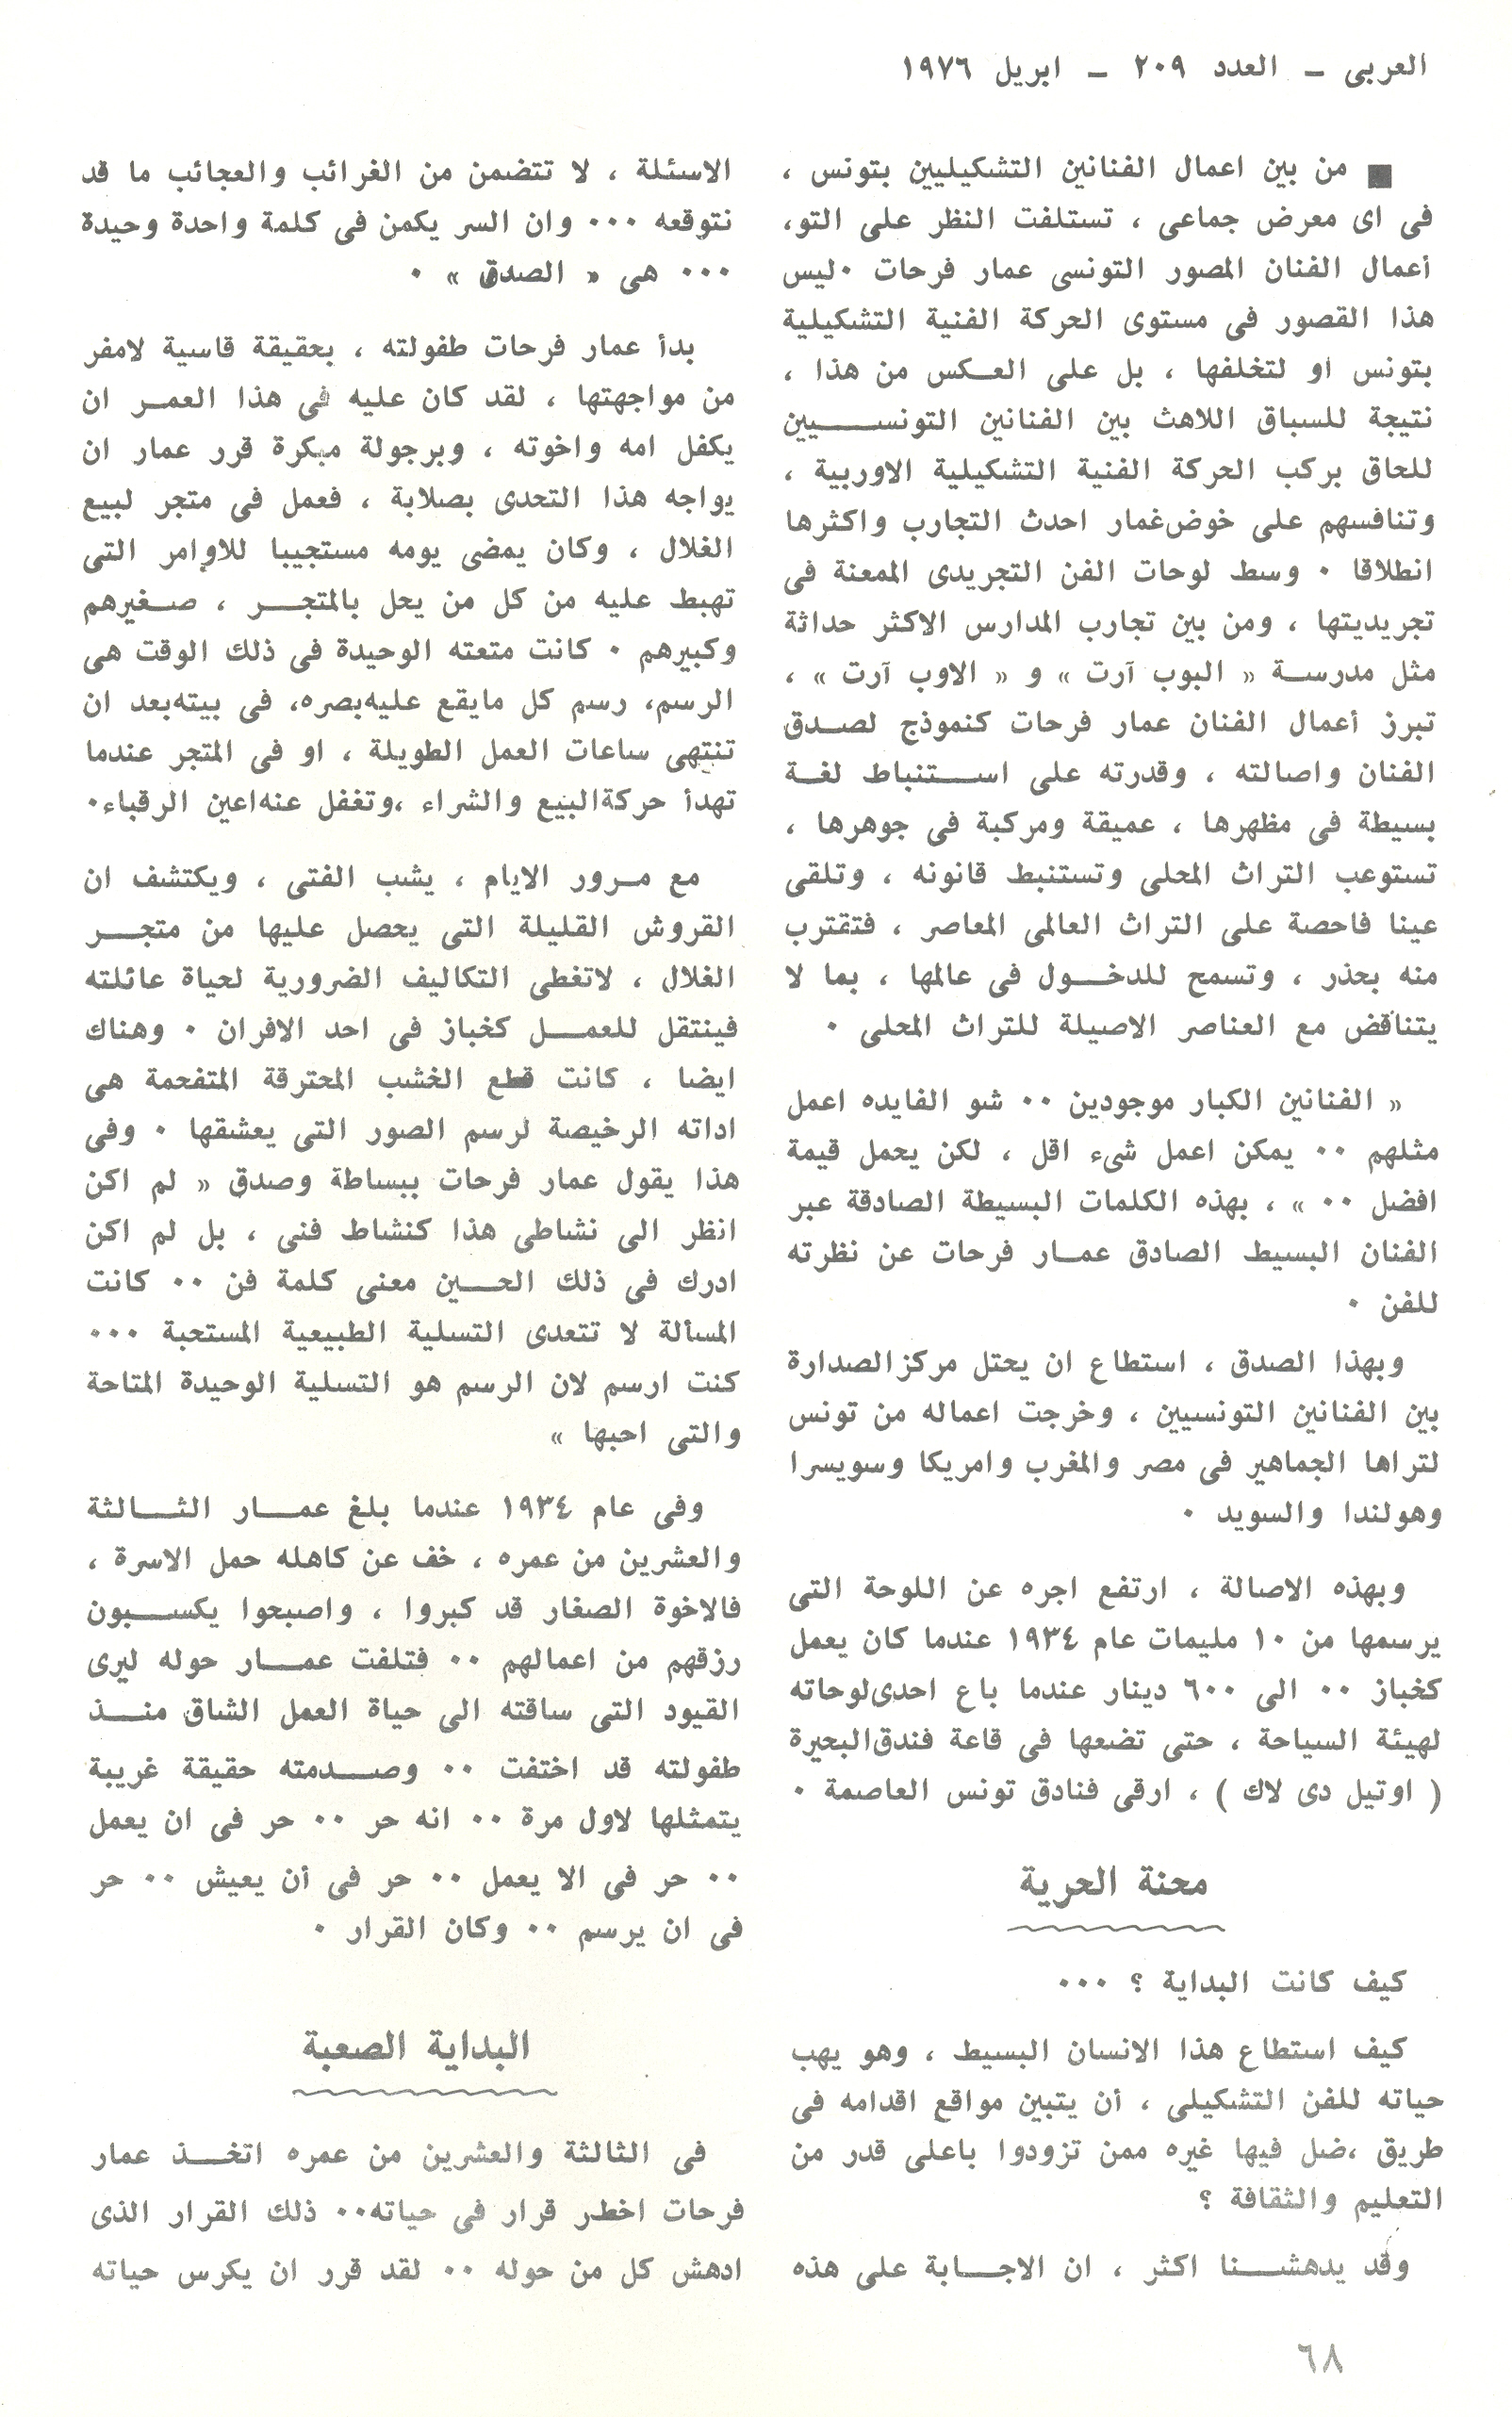 العربى – العدد ٢٠٩ – ابريل ١٩٧٦
■ من بين اعمال الفنانين التشكيليين بتونس ،
فى اى معرض جماعى ، تستلفت النظر على التو،
أعمال الفنان المصور التونسى عمار فرحات ٠ليس
هذا القصور فى مستوى الحركة الفنية التشكيلية
بتونس او لتخلفها ، بل على العكس من هذا ،
نتيجة للسباق اللاهث بين الفنانين التونسيين
للحاق بركب الحركة الفنية التشكيلية الاوربية ،
وتنافسهم على خوض غمار احدث التجارب واكثرها
انطلاقا ٠ وسط لوحات الفن التجريدى الممعنة فى
تجريديتها ، ومن بين تجارب المدارس الاكثر حداثة
مثل مدرسة « البوب آرت » و « الاوب آرت » ،
تبرز أعمال الفنان عمار فرحات كنموذج لصدق
الفنان واصالته ، وقدرته على استنباط لغة
بسيطة فى مظهرها ، عميقة ومركبة فى جوهرها ،
تستوعب التراث المحلى وتستنبط قانونه ، وتلقى
عينا فاحصة على التراث العالمى المعاصر ، فتقترب
منه بحذر ، وتسمح للدخول فى عالمها ، بما لا
يتناقض مع العناصر الاصيلة للتراث المحلى ٠
« الفنانين الكبار موجودين ٠٠ شو الفايده اعمل
مثلهم ٠٠ يمكن اعمل شىء اقل ، لكن يحمل قيمة
افضل ٠٠ » ، بهذه الكلمات البسيطة الصادقة عبر
الفنان البسيط الصادق عمار فرحات عن نظرته
للفن ٠
وبهذا الصدق ، استطاع ان يحتل مركز الصدارة
بين الفنانين التونسيين ، وخرجت اعماله من تونس
لتراها الجماهير فى مصر والمغرب وامريكا وسويسرا
وهولندا والسويد ٠
وبهذه الاصالة ، ارتفع اجره عن اللوحة التى
يرسمها من ١٠ مليمات عام ١٩٣٤ عندما كان يعمل
كخباز ٠٠ الى ٦٠٠ دينار عندما باع احدى لوحاته
لهيئة السياحة ، حتى تضعها فى قاعة فندق البحيرة
( اوتيل دى لاك ) ، ارقى فنادق تونس العاصمة ٠
محنة الحرية
كيف كانت البداية ؟ ٠٠٠
كيف استطاع هذا الانسان البسيط ، وهو يهب
حياته للفن التشكيلى ، أن يتبين مواقع اقدامه فى
طريق ،ضل فيها غيره ممن تزودوا باعلى قدر من
التعليم والثقافة ؟
وقد يدهشنا اكثر ، ان الاجابة على هذه
الاسئلة ، لا تتضمن من الغرائب والعجائب ما قد
نتوقعه ٠٠٠ وان السر يكمن فى كلمة واحدة وحيدة
٠٠٠ هى « الصدق » ٠
بدأ عمار فرحات طفولته ، بحقيقة قاسية لامفر
من مواجهتها ، لقد كان عليه فى هذا العمر ان
يكفل امه واخوته ، وبرجولة مبكرة قرر عمار ان
يواجه هذا التحدى بصلابة ، فعمل فى متجر لبيع
الغلال ، وكان يمضى يومه مستجيبا للاوامر التى
تهبط عليه من كل من يحل بالمتجر ، صغيرهم
وكبيرهم ٠ كانت متعته الوحيدة فى ذلك الوقت هى
الرسم، رسم كل مايقع عليه بصره، فى بيته بعد ان
تنتهى ساعات العمل الطويلة ، او فى المتجر عندما
تهدأ حركة البيع والشراء ،وتغفل عنه اعين الرقباء٠
مع مرور الايام ، يشب الفتى ، ويكتشف ان
القروش القليلة التى يحصل عليها من متجر
الغلال ، لاتغطى التكاليف الضرورية لحياة عائلته
فينتقل للعمل كخباز فى احد الافران ٠ وهناك
ايضا ، كانت قطع الخشب المحترقة المتفحمة هى
اداته الرخيصة لرسم الصور التى يعشقها ٠ وفى
هذا يقول عمار فرحات ببساطة وصدق « لم اكن
انظر الى نشاطى هذا كنشاط فنى ، بل لم اكن
ادرك فى ذلك الحين معنى كلمة فن ٠٠ كانت
المسألة لا تتعدى التسلية الطبيعية المستحبة ٠٠٠
كنت ارسم لان الرسم هو التسلية الوحيدة المتاحة
والتى احبها »
وفى عام ١٩٣٤ عندما بلغ عمار الثالثة
والعشرين من عمره ، خف عن كاهله حمل الاسرة ،
فالاخوة الصغار قد كبروا ، واصبحوا يكسبون
رزقهم من اعمالهم ٠٠ فتلفت عمار حوله ليرى
القيود التى ساقته الى حياة العمل الشاق منذ
طفولته قد اختفت ٠٠ وصدمته حقيقة غريبة
يتمثلها لاول مرة ٠٠ انه حر ٠٠ حر فى ان يعمل
٠٠ حر فى الا يعمل ٠٠ حر فى أن يعيش ٠٠ حر
فى ان يرسم ٠٠ وكان القرار ٠
البداية الصعبة
فى الثالثة والعشرين من عمره اتخذ عمار
فرحات اخطر قرار فى حياته٠٠ ذلك القرار الذى
ادهش كل من حوله ٠٠ لقد قرر ان يكرس حياته
٦٨